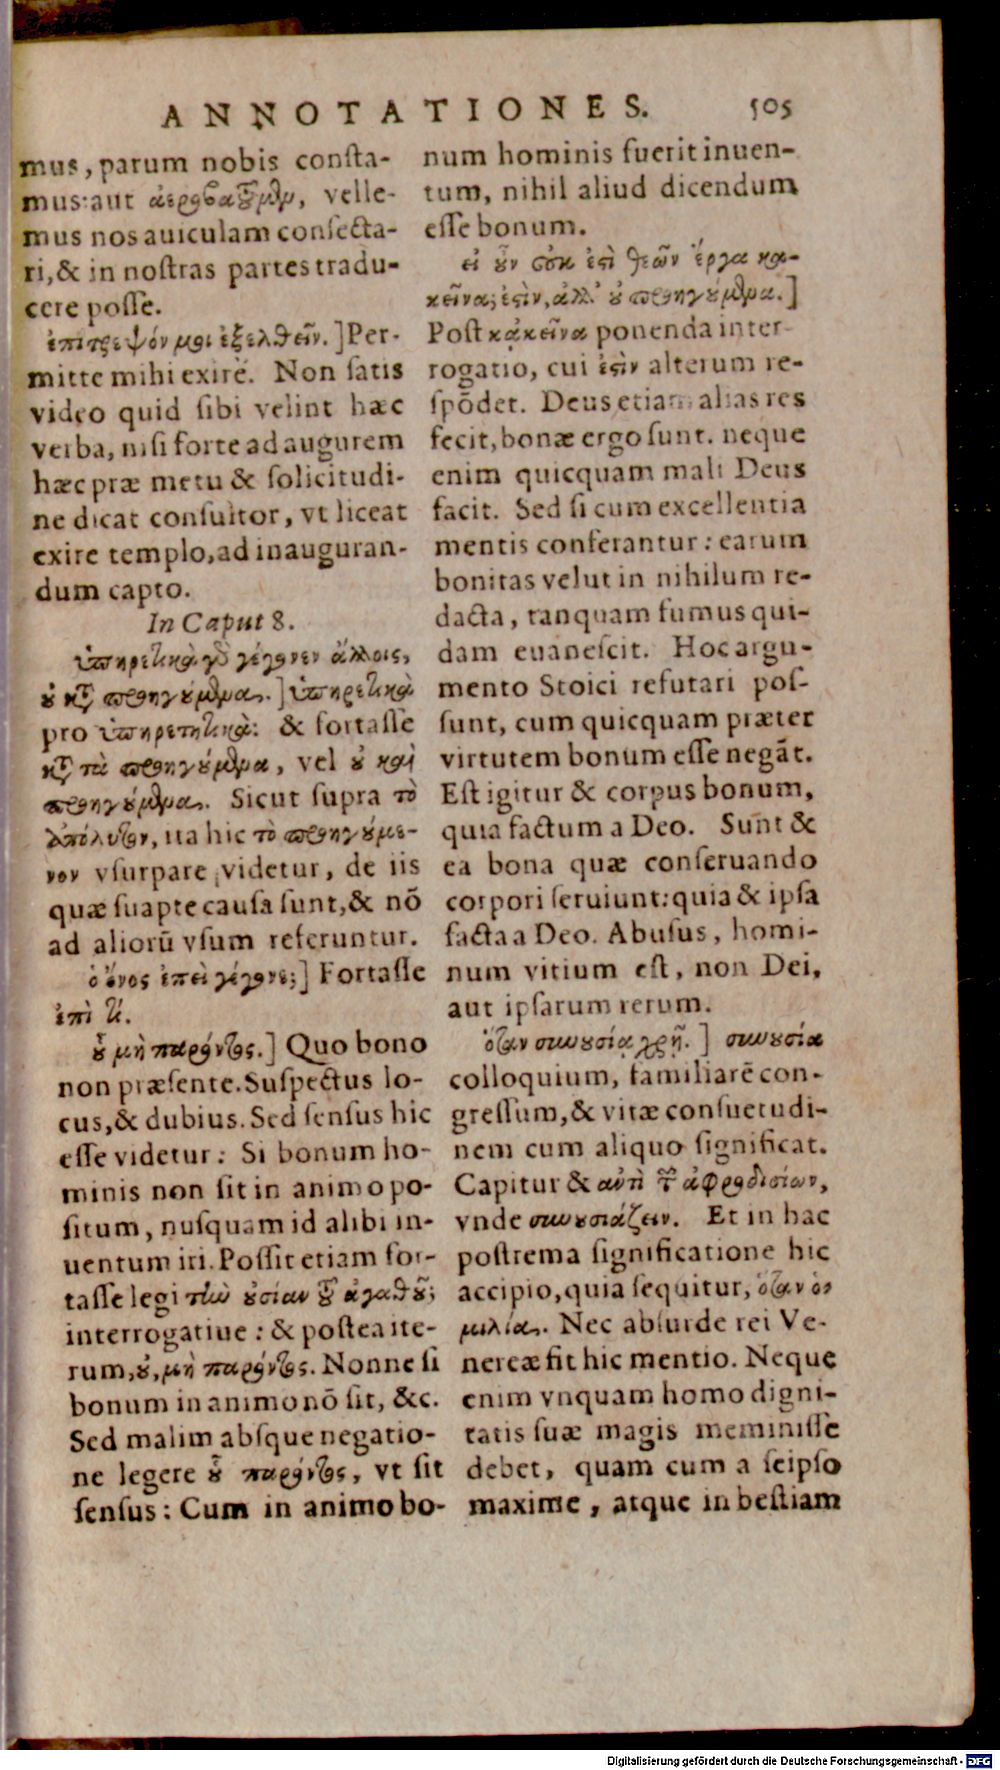 ANNOTATIONES. 505
mus, parum nobis consta-
mus: aut ἀεροβατοῦμεν, velle-
mus nos auiculam consecta-
ri, & in nostras partes tradu-
cere posse.
ἐπίτρεψόν μοι ἐξελθεῖν.] Per-
mitte mihi exire. Non satis
video quid sibi velint hæc
verba, nisi forte ad augurem
hæc præ metu & solicitudi-
ne dicat consultor, vt liceat
exire templo, ad inauguran-
dum capto.
In Caput 8.
ὑπηρετικὰ γὰρ γέγονεν ἄλλοις,
οὐ κατὰ προηγούμενα.] ὑπηρετικὰ
pro ὑπηρετητικὰ: & fortasse
κατὰ τὰ προηγούμενα, vel οὐ καὶ
προηγούμενα. Sicut supra τὸ
ἀπόλυτον, ita hic τὸ προηγούμε-
νον vsurpare videtur, de iis
quæ suapte causa sunt, & nō
ad aliorū vsum referuntur.
ὁ ὄνος ἐπεὶ γέγονε;] Fortasse
ἐπὶ τί.
οὗ μὴ παρόντος.] Quo bono
non præsente. Suspectus lo-
cus, & dubius. Sed sensus hic
esse videtur: Si bonum ho-
minis non sit in animo po-
situm, nusquam id alibi in-
uentum iri. Possit etiam for-
tasse legi τὴν οὐσίαν τοῦ ἀγαθοῦ;
interrogatiue: & postea ite-
rum, οὐ, μὴ παρόντος. Nonne si
bonum in animo nō sit, &c.
Sed malim absque negatio-
ne legere οὗ παρόντος, vt sit
sensus: Cum in animo bo-
num hominis fuerit inuen-
tum, nihil aliud dicendum
esse bonum.
εἰ οὖν οὐκ ἐστὶ θεῶν ἔργα κα-
κεῖνα; ἐστὶν, ἀλλ' οὐ προηγούμενα.]
Post κᾀκεῖνα ponenda inter-
rogatio, cui ἐστὶν alterum re-
spōdet. Deus etiam alias res
fecit, bonæ ergo sunt. neque
enim quicquam mali Deus
facit. Sed si cum excellentia
mentis conferantur: earum
bonitas velut in nihilum re-
dacta, tanquam fumus qui-
dam euanescit. Hoc argu-
mento Stoici refutari pos-
sunt, cum quicquam præter
virtutem bonum esse negāt.
Est igitur & corpus bonum,
quia factum a Deo. Sunt &
ea bona quæ conseruando
corpori seruiunt: quia & ipsa
facta a Deo. Abusus, homi-
num vitium est, non Dei,
aut ipsarum rerum.
ὅταν συνουσίᾳ χρῇ.] συνουσία
colloquium, familiarē con-
gressum, & vitæ consuetudi-
nem cum aliquo significat.
Capitur & αντὶ τῶν ἀφροδισίων,
vnde συνουσιάζειν. Et in hac
postrema significatione hic
accipio, quia sequitur, ὅταν ὁ-
μιλίας. Nec absurde rei Ve-
nereæ fit hic mentio. Neque
enim vnquam homo digni-
tatis suæ magis meminisse
debet, quam cum a seipso
maxime, atque in bestiam
Digitalisierung gefördert durch die Deutsche Forschungsgemeinschaft - DFG